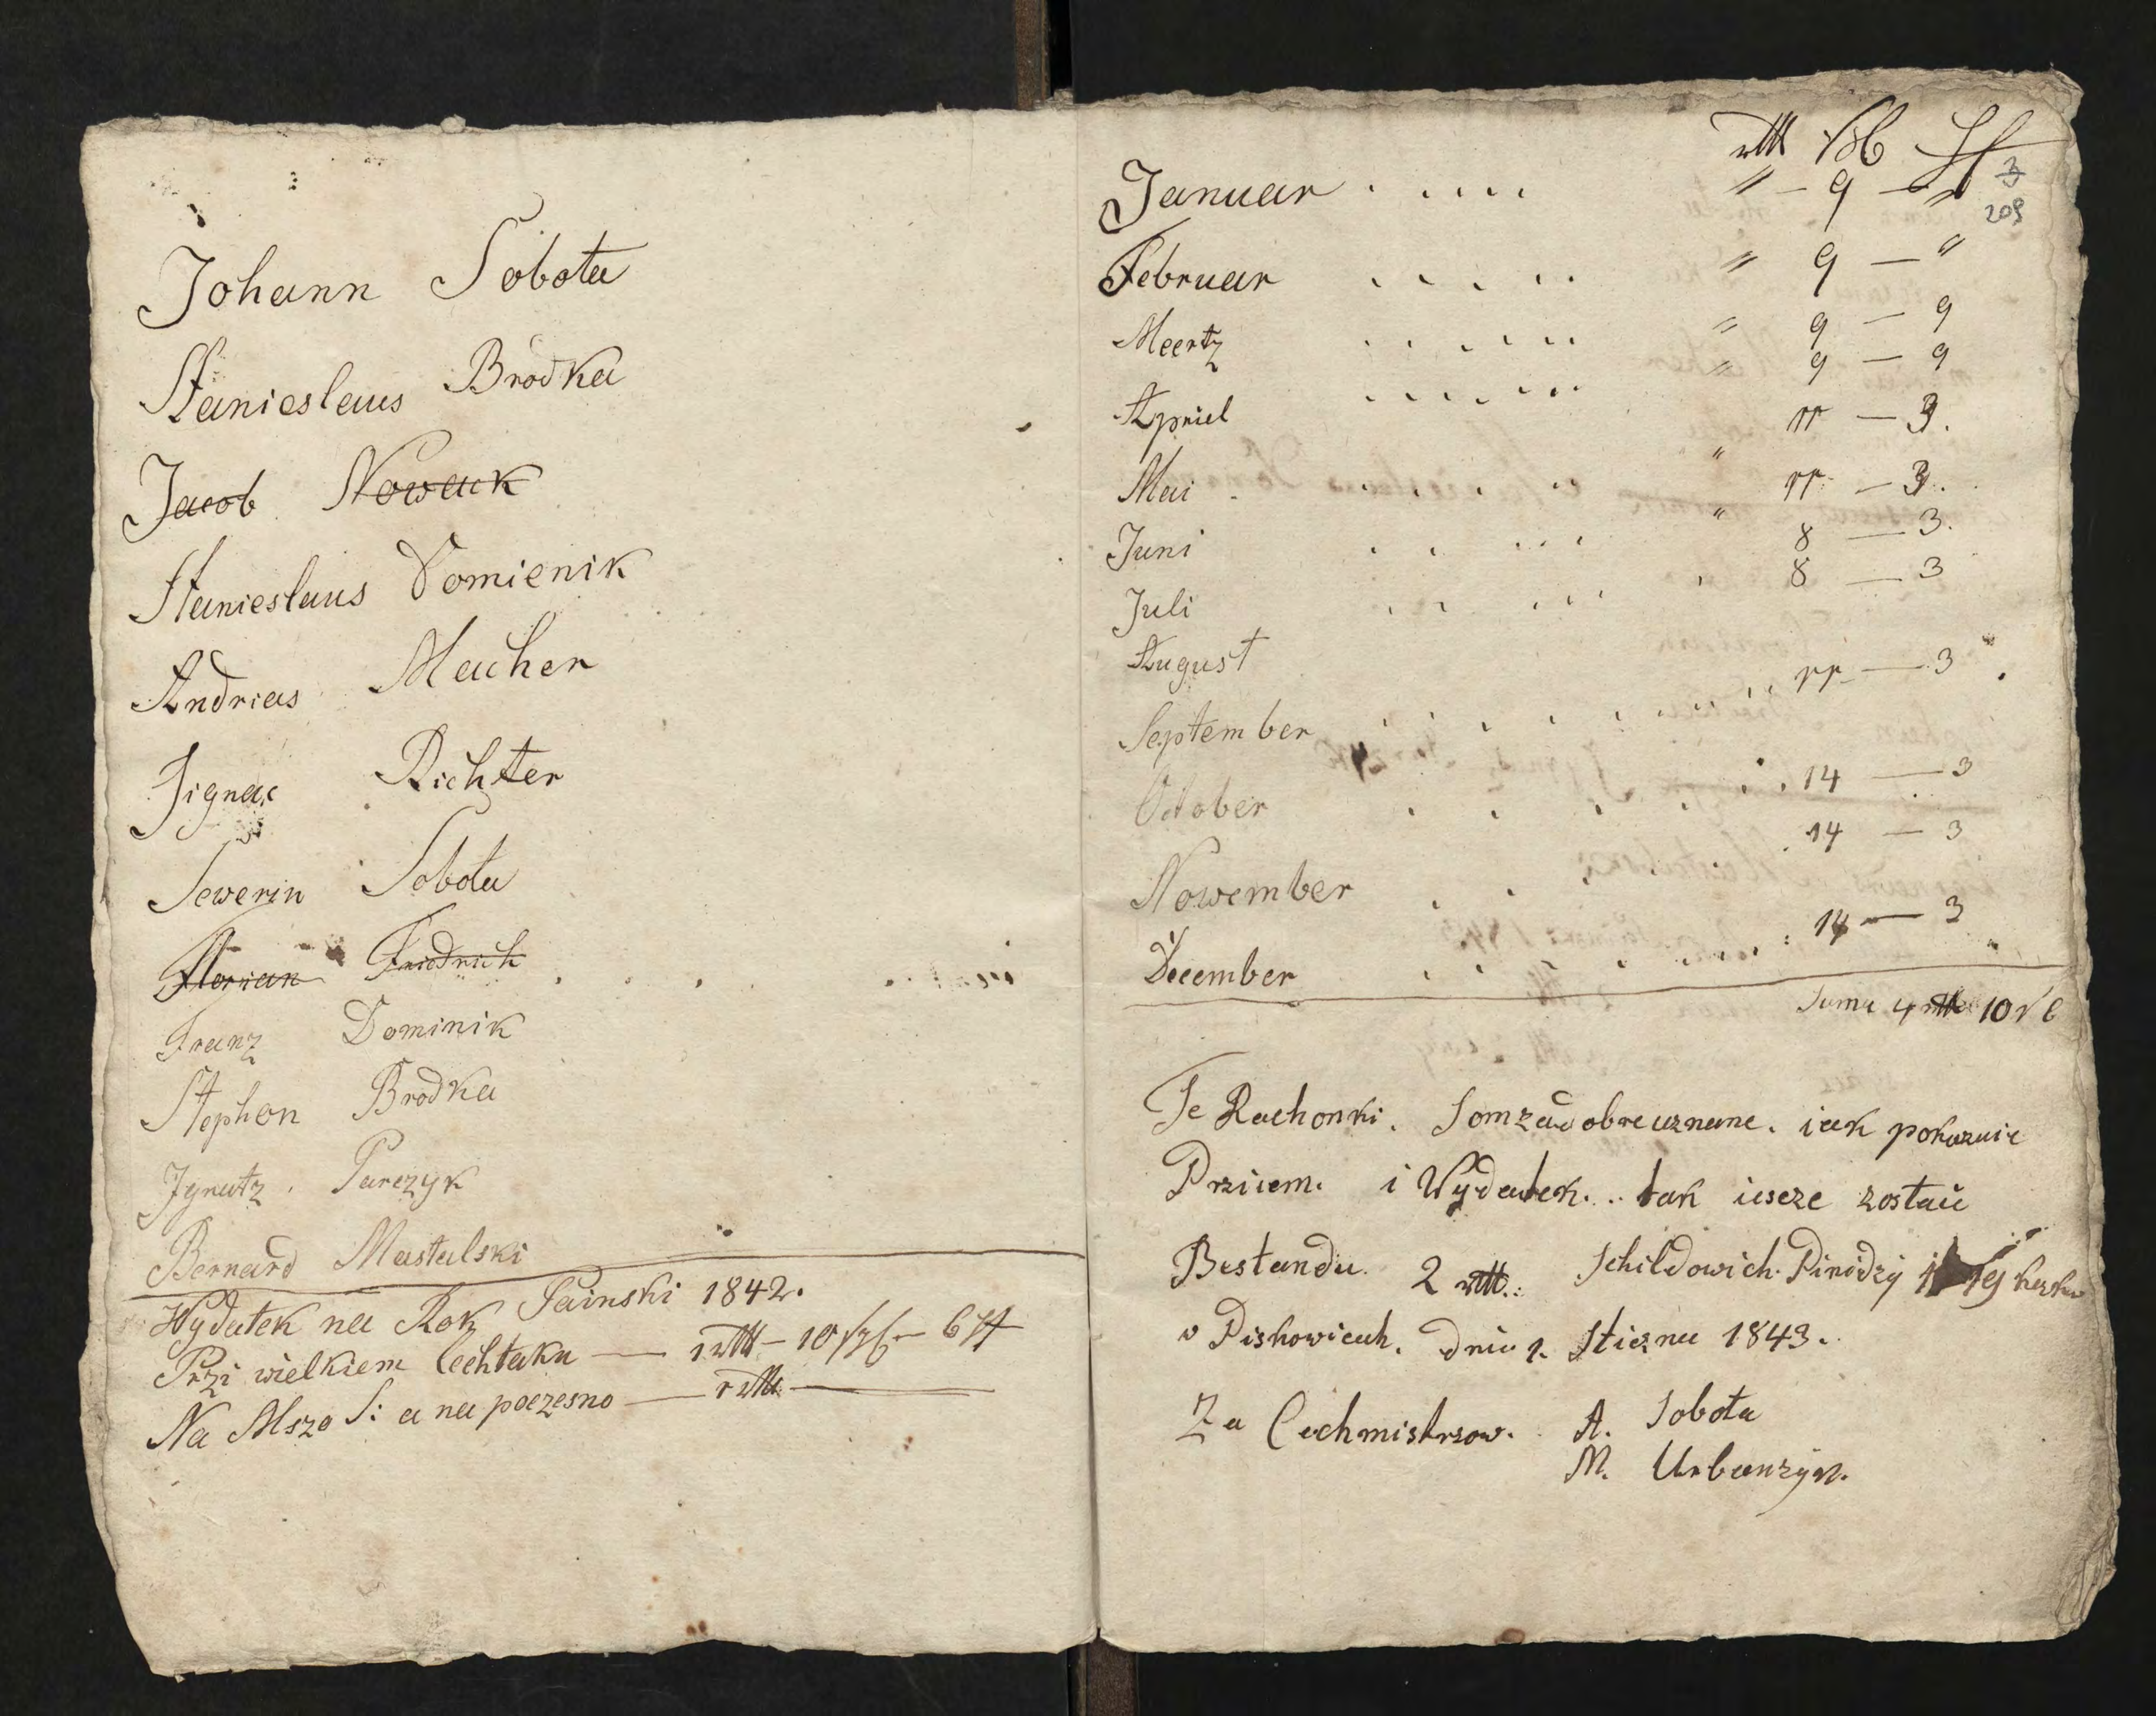 Johann Sobota
Stanieslaus Brodka
Jacob Nowak
Stanieslaus Domienik
Andrias Macher
Jignac Richter
Sewerin Sobota
Florian Friedrich
Franz Dominik
Stephon Brodka
Jgnatz Parczyk
Bernard Mastalski
Wydatek na Rok Painski 1842.
Przi wielkiem Cechtaku — 1 rtt — 10 sgl — 6 ff
Na Mszo S: a na poczesno — 1 rtt —
rtt sgl ff
3
209
Januar . . . . . " — 9 — "
Februar . . . . . " 9 — "
Meertz . . . . . . " 9 — 9
Apriel . . . . . . . " 9 — 9
Mai . . . . . " 11 — 3.
Juni . . . . . " 11 — 3.
Juli . . . . . 8 — 3.
August 8 — 3
September . . . . . . . . 11 — 3
October . . . . . . . 14 — 3
Nowember . . . 14 — 3
December . . . . . . . . 14 — 3
Suma 4 rtt 10 sl
Te Rachonki. Som za dobre uznane. iak pokazuie
Prziiem. i Wydatek... tak iesze zostaie
Bestandu. 2 rtt.: Schildowich. Pinidzy 19
v Pishowicach. dnia 1. Sticznia 1843.
Za Cechmistrzow. A. Sobota
M. Urbanzyk.